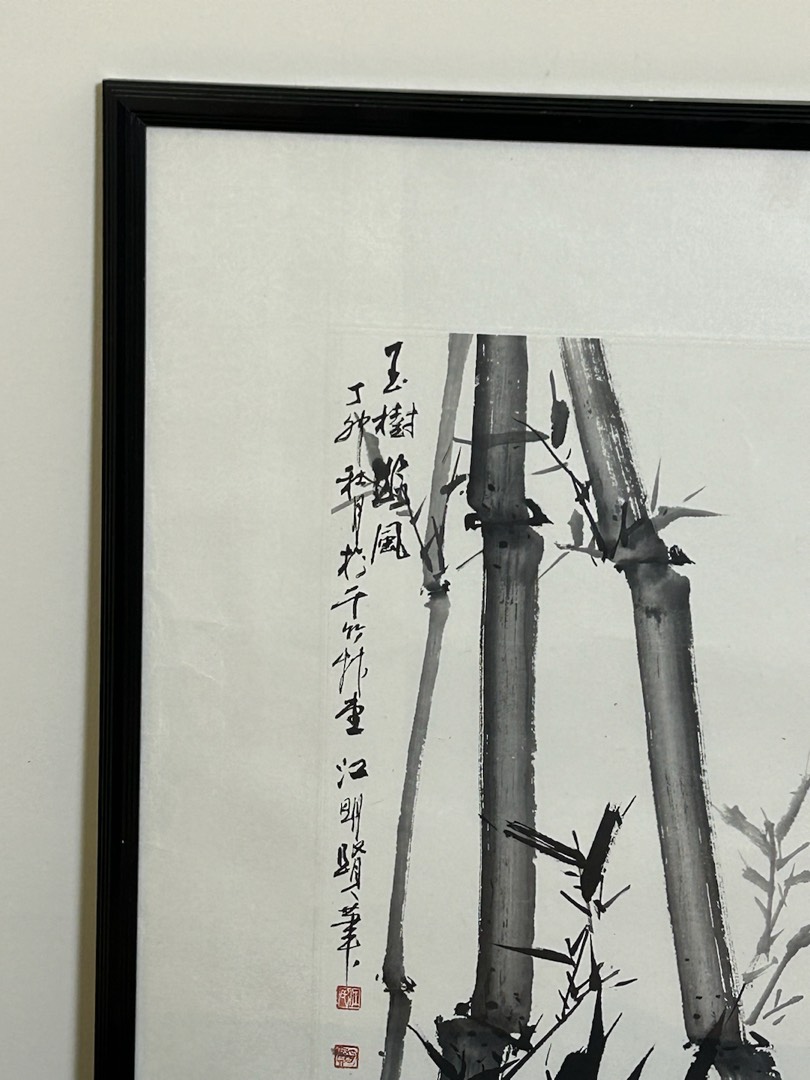 玉樹臨風
丁卯秋月於千竹艸堂 江明賢筆